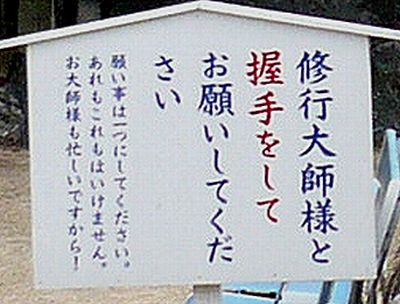 修行大師様と
握手をして
お願いしてくだ
さい
願い事は一つにしてください。
あれもこれもはいけません。
お大師様も忙しいですから！